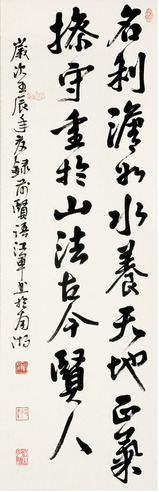 名利澹如水養天地正氣
操守重於山法古今賢人
歲次壬辰年夏錄前賢語江軍書於南湖